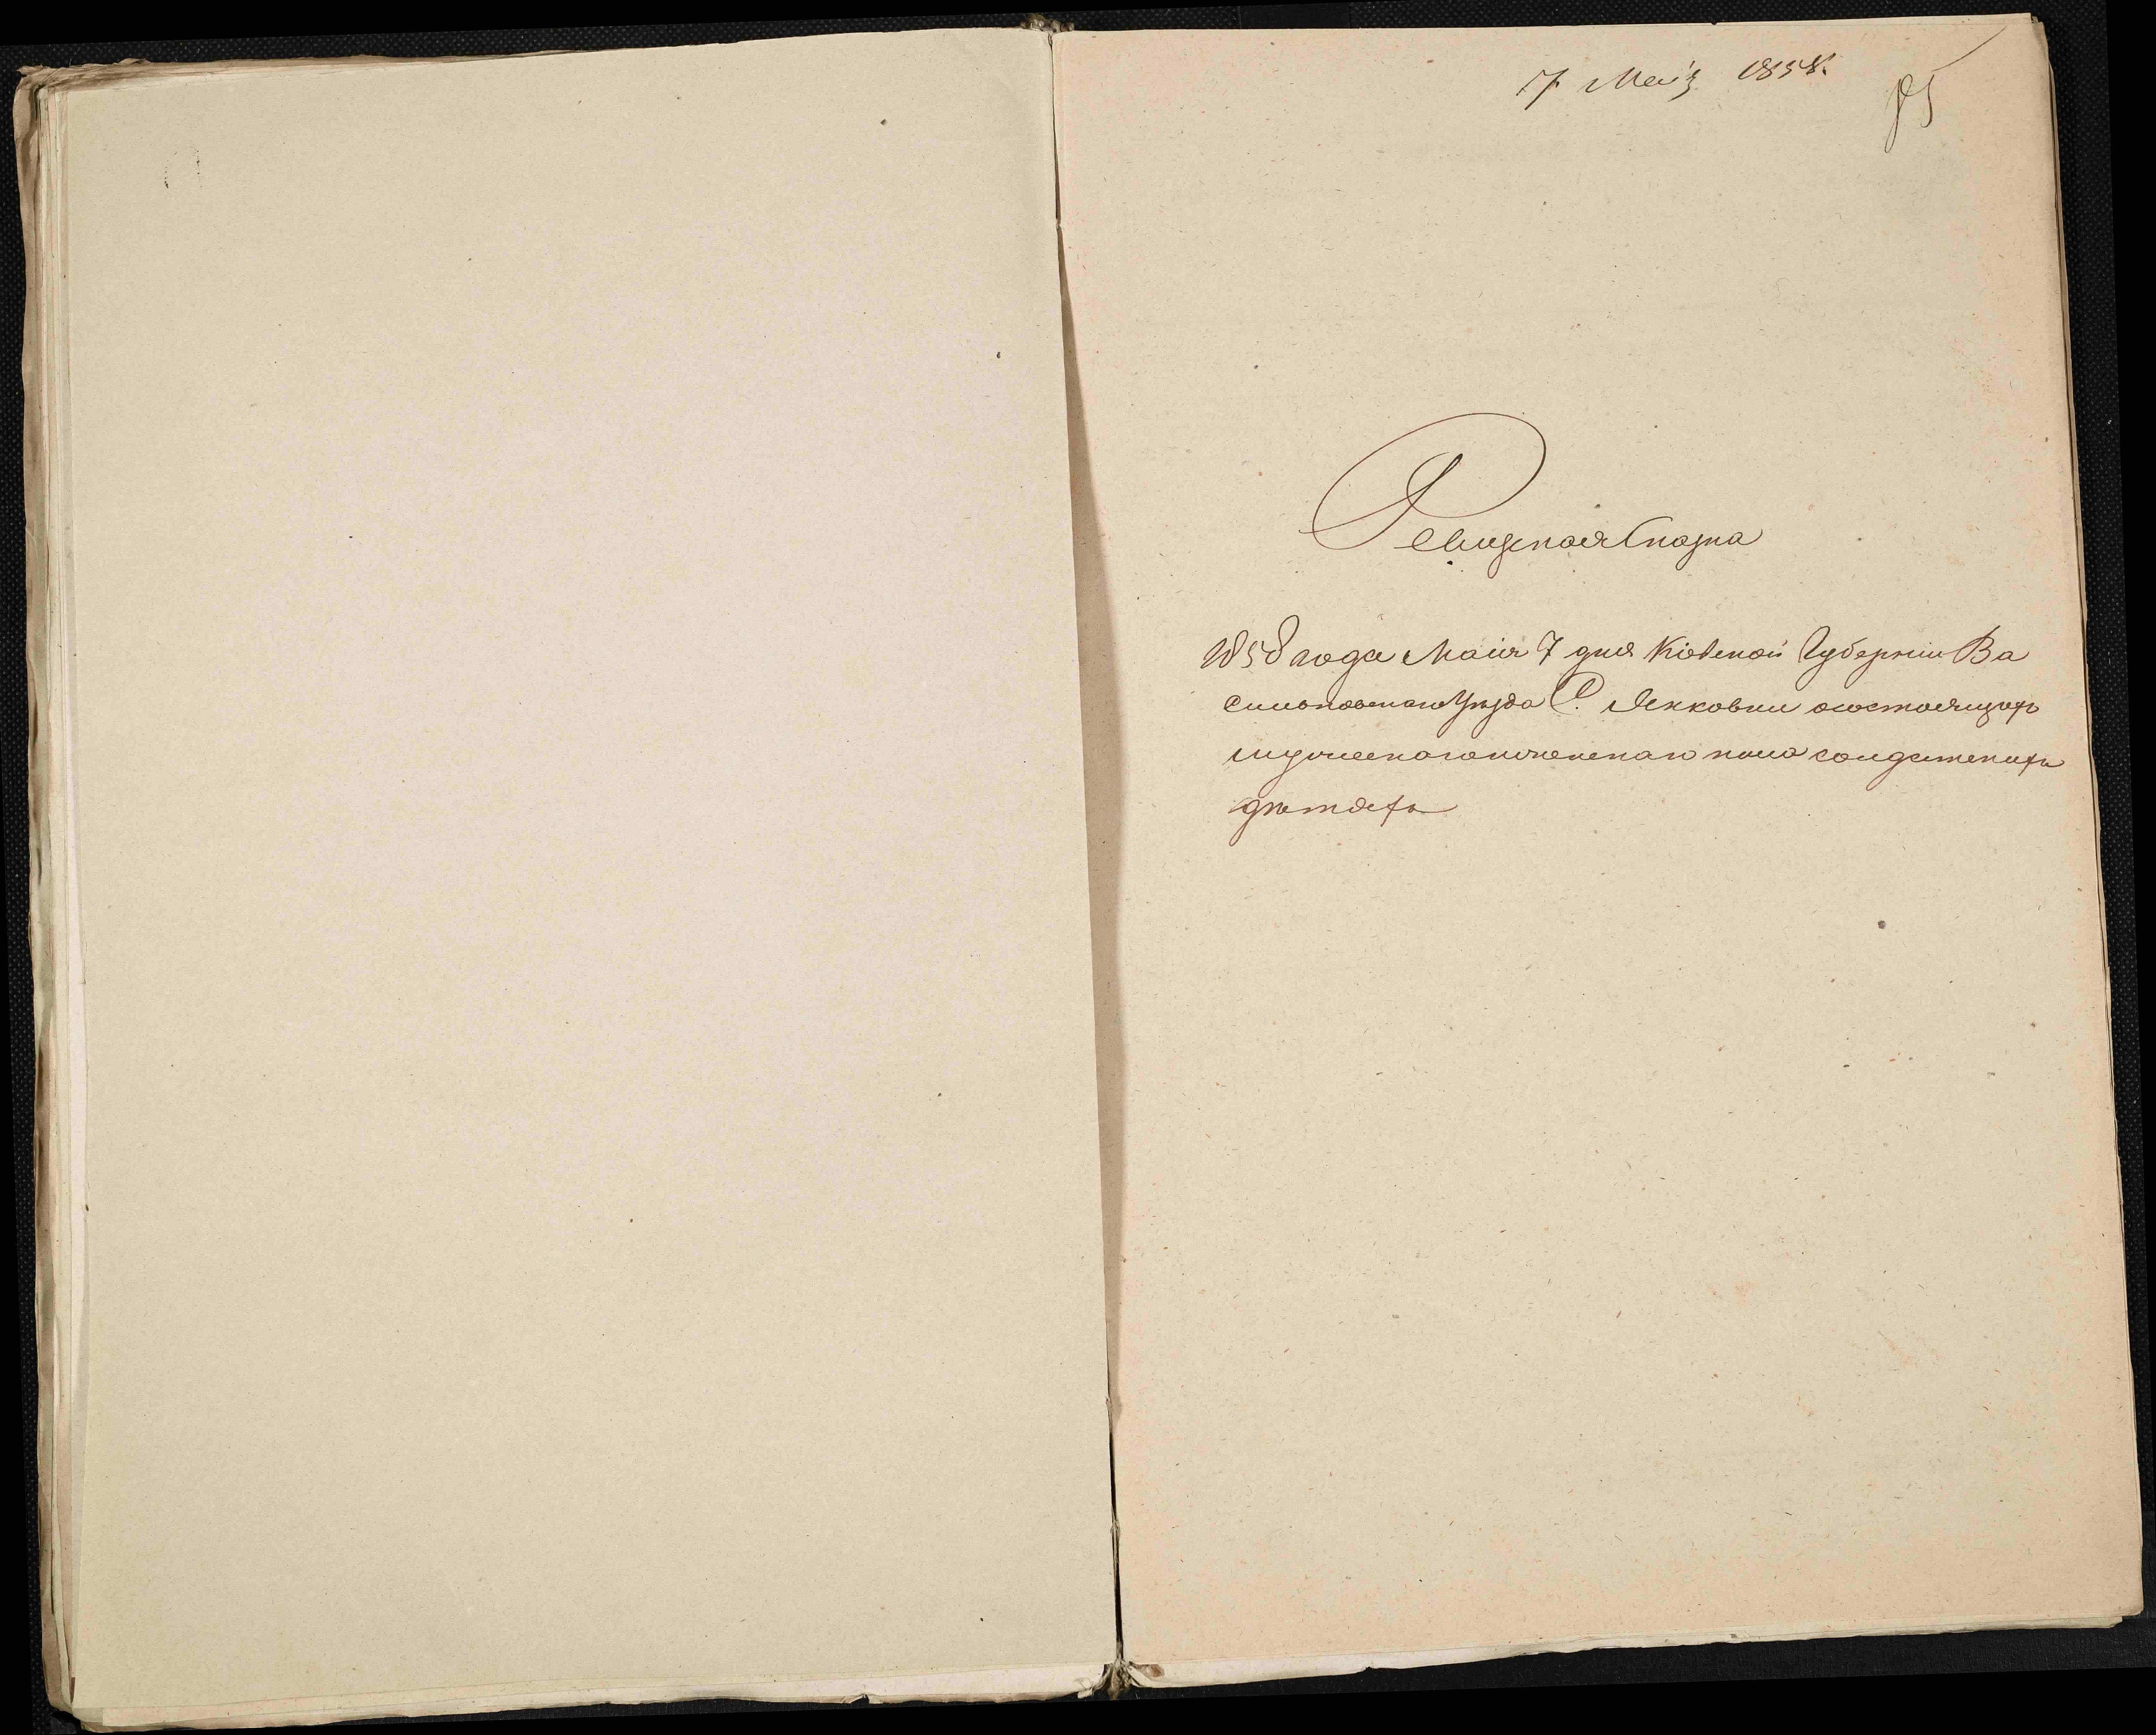 7 Маія 1858.
85
Ревизская Сказка
1858 года Маія 7 дня Кіевской Губерніи Ва
сильковскаго Уѣзда С. Яцковки о состоящихъ
мужескаго и женскаго пола солдатскихъ
дѣтяхъ